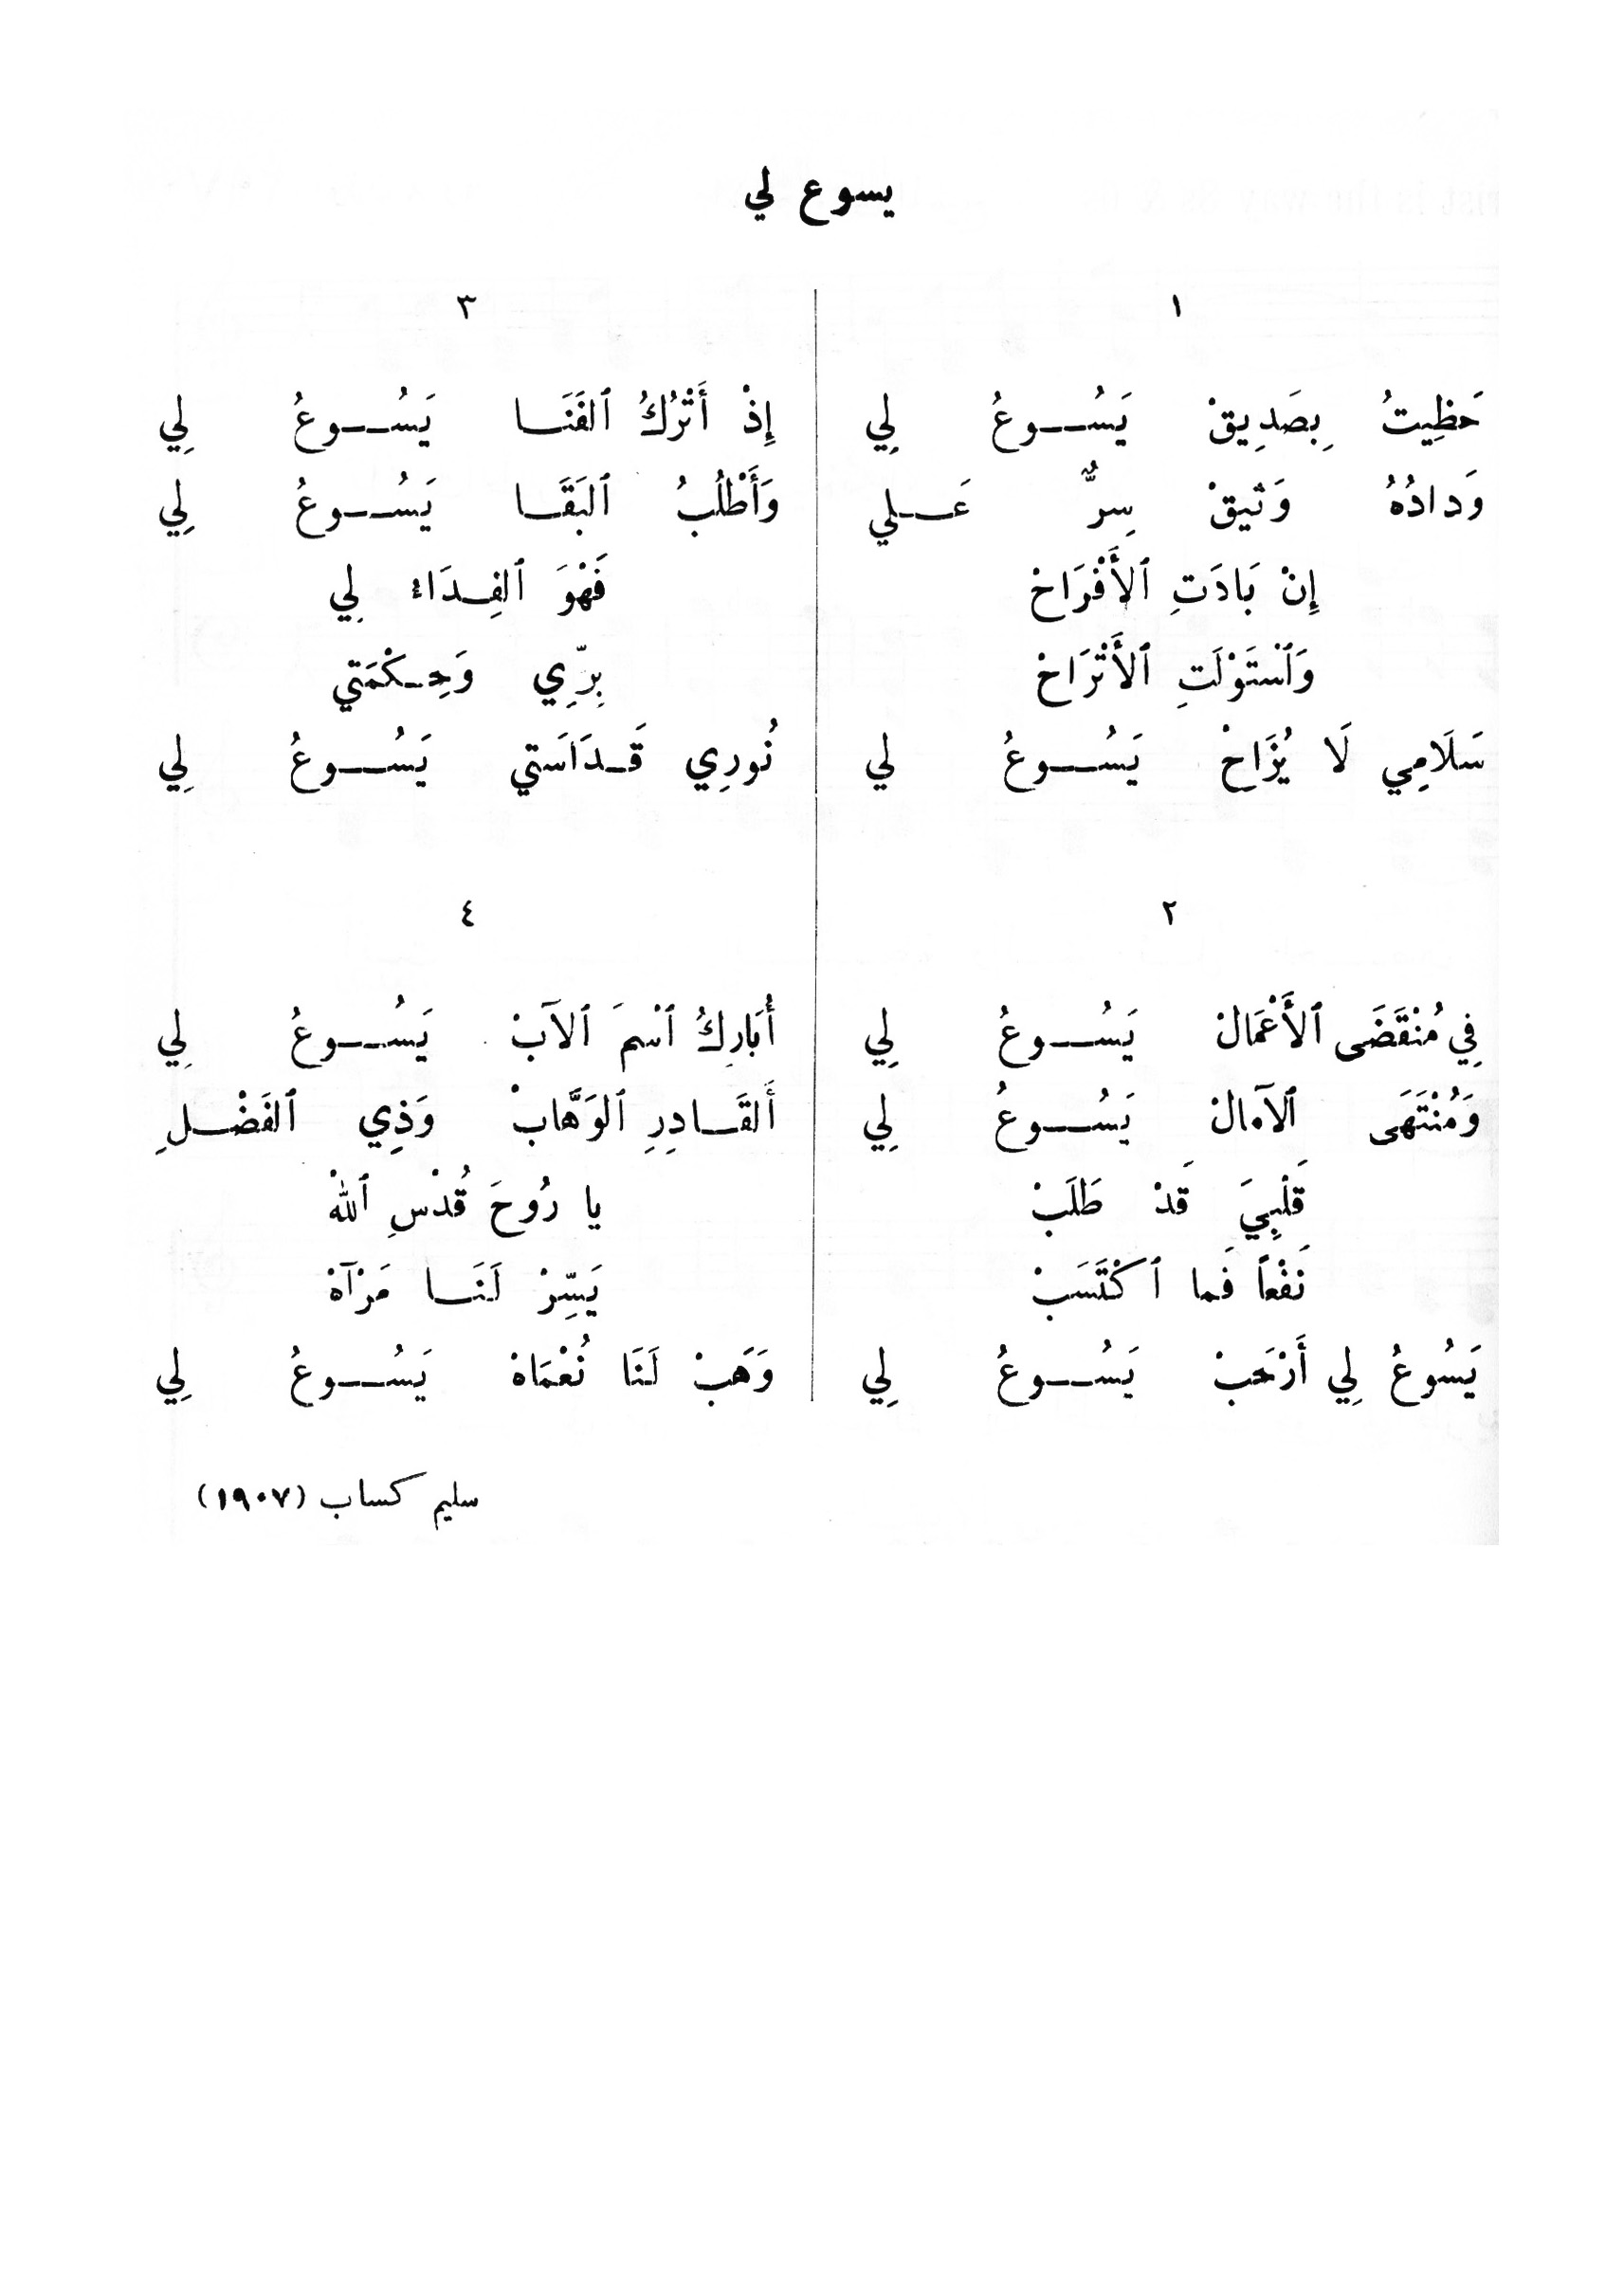 يسوع لي
١
حَظِيتُ بِصَدِيقْ يَسُوعُ لِي
وَدادُهُ وَثيقْ سِرٌّ عَلي
إِنْ بَادَتِ ٱلأَفْرَاحْ
وَٱسْتَوْلَتِ ٱلأَتْرَاحْ
سَلَامِي لَا يُزَاحْ يَسُوعُ لي
٢
فِي مُنْقَضَى ٱلأَعْمَالْ يَسُوعُ لِي
وَمُنْتَهَى ٱلآمالْ يَسُوعُ لِي
قَلْبِيَ قَدْ طَلَبْ
نَفْعاً فَما ٱكْتَسَبْ
يَسُوعُ لِي أَرْحَبْ يَسُوعُ لِي
٣
إِذْ أَتْرُكُ ٱلفَنَا يَسُوعُ لِي
وَأَطْلُبُ ٱلبَقَا يَسُوعُ لِي
فَهْوَ ٱلفِدَاءُ لِي
بِرِّي وَحِكْمَتي
نُورِي قَدَاسَتي يَسُوعُ لِي
٤
أُبَارِكُ ٱسْمَ ٱلآبْ يَسُوعُ لِي
أَلقَادِرِ ٱلوَهَّابْ وَذِي ٱلفَضْلِ
يا رُوحَ قُدْسِ ٱللهْ
يَسِّرْ لَنَا مَرْآهْ
وَهَبْ لَنَا نُعْمَاهْ يَسُوعُ لِي
سليم كساب (١٩٠٧)